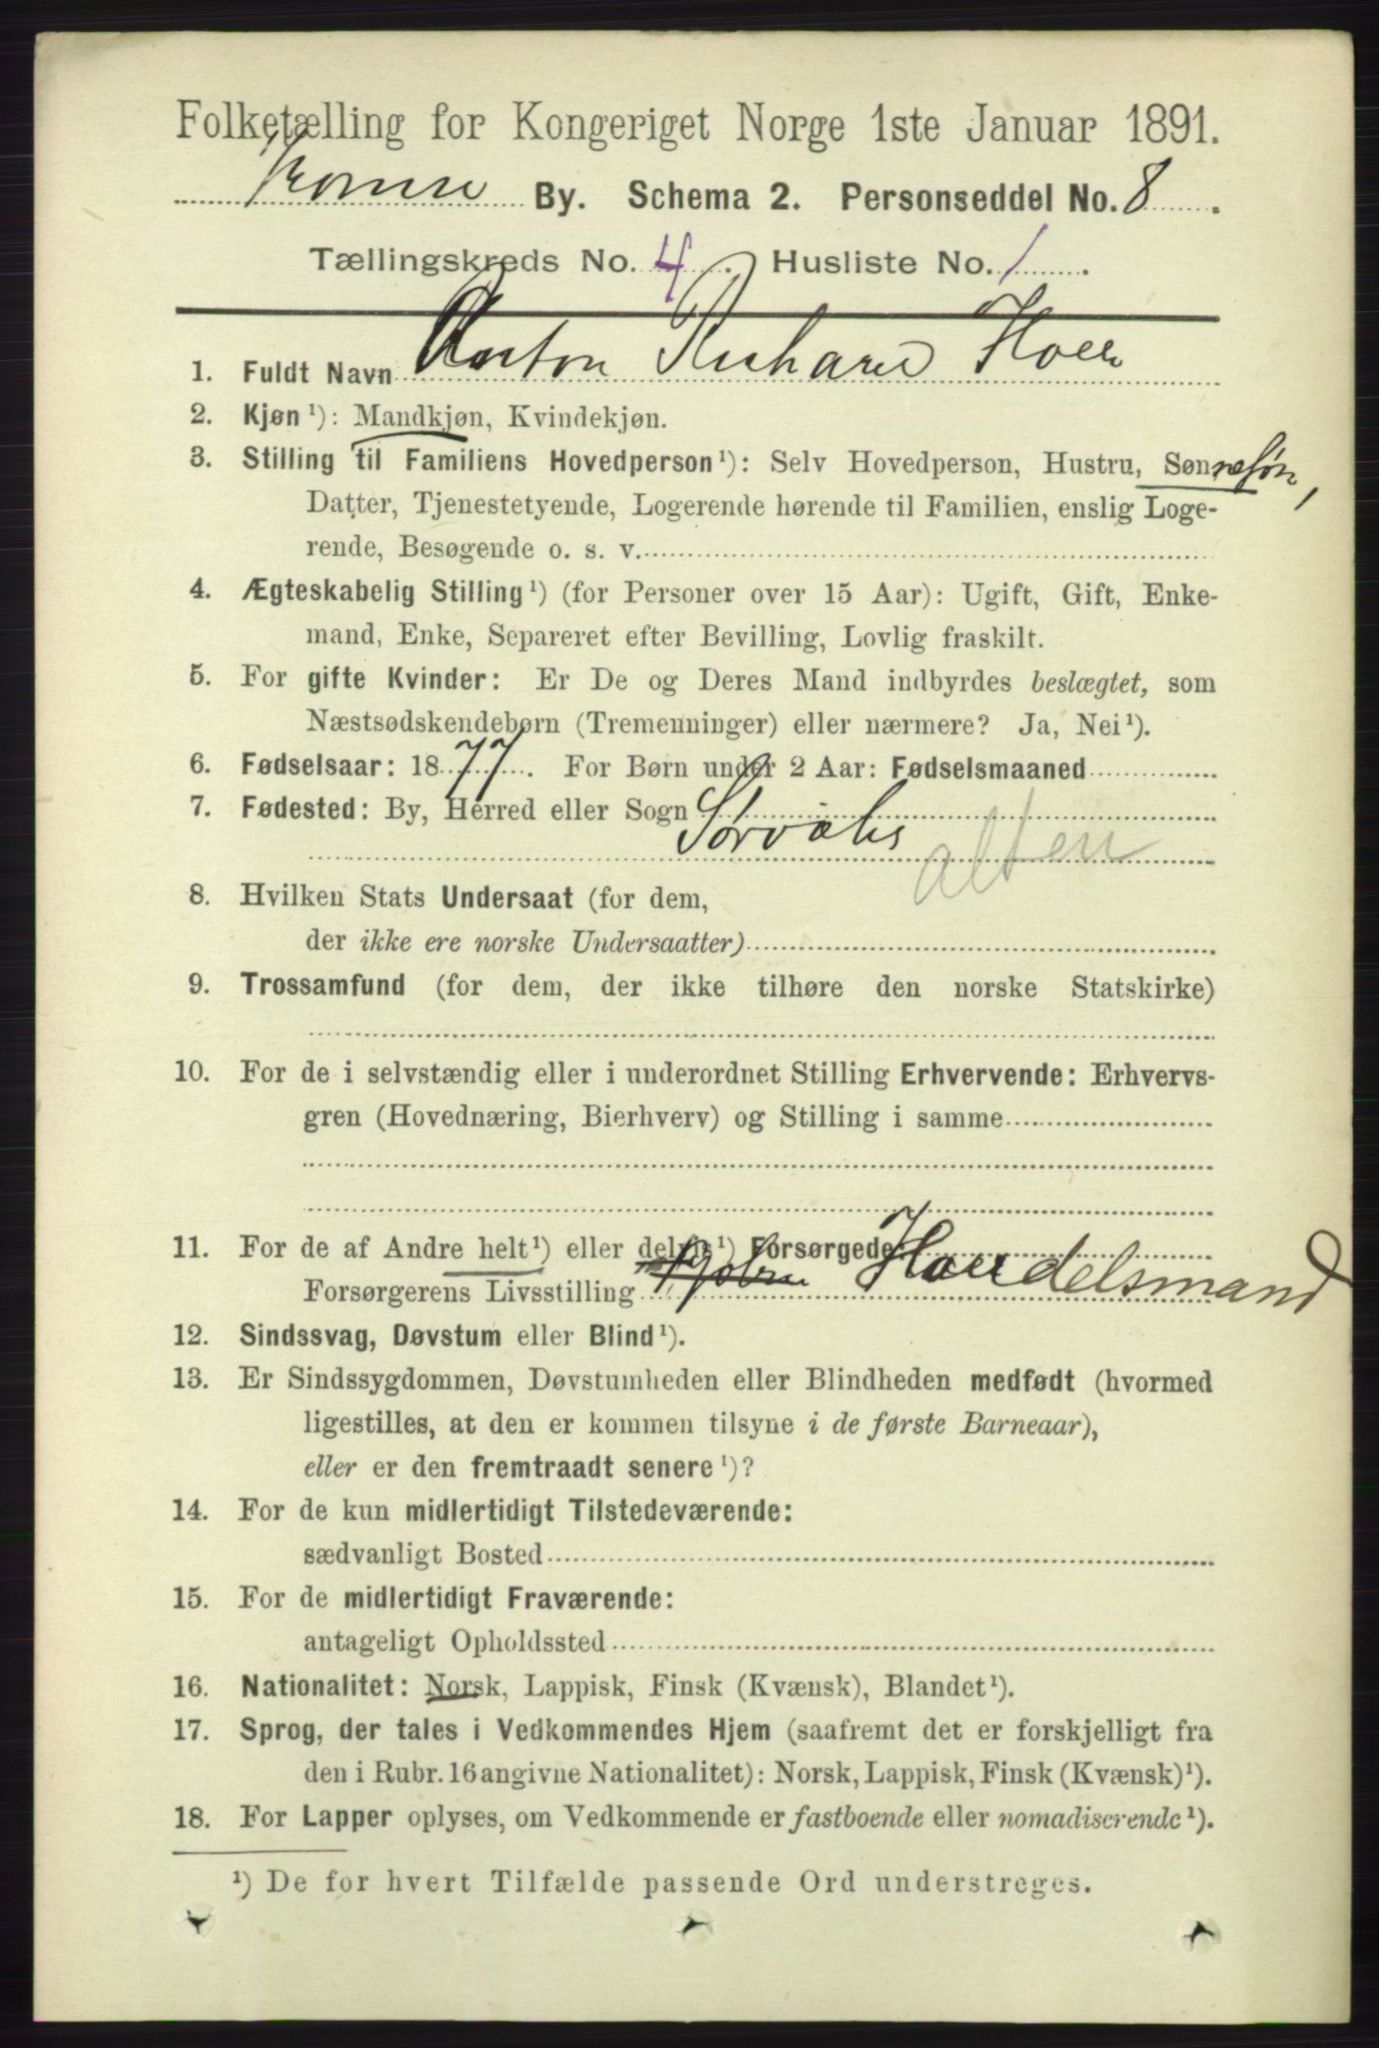 Folketælling for Kongeriget Norge 1ste Januar 1891.
By. Schema 2. Personseddel No. 8.
Tællingskreds No. 4. Husliste No. 1.
1. Fuldt Navn Anton Richard
2. Kjøn¹): Mandkjøn, Kvindekjøn.
3. Stilling til Familiens Hovedperson¹): Selv Hovedperson, Hustru, Sønnesøn,
Datter, Tjenestetyende, Logerende hørende til Familien, enslig Loge-
rende, Besøgende o. s. v.
4. Ægteskabelig Stilling¹) (for Personer over 15 Aar): Ugift, Gift, Enke-
mand, Enke, Separeret efter Bevilling, Lovlig fraskilt.
5. For gifte Kvinder: Er De og Deres Mand indbyrdes beslægtet, som
Næstsødskendebørn (Tremenninger) eller nærmere? Ja, Nei¹).
6. Fødselsaar: 1877. For Børn under 2 Aar: Fødselsmaaned
7. Fødested: By, Herred eller Sogn
Alten
8. Hvilken Stats Undersaat (for dem,
der ikke ere norske Undersaatter)
9. Trossamfund (for dem, der ikke tilhøre den norske Statskirke)
10. For de i selvstændig eller i underordnet Stilling Erhvervende: Erhvervs-
gren (Hovednæring, Bierhverv) og Stilling i samme
11. For de af Andre helt¹) eller delvis¹) Forsørgede:
Forsørgerens Livsstilling Handelsmand
12. Sindssvag, Døvstum eller Blind¹).
13. Er Sindssygdommen, Døvstumheden eller Blindheden medfødt (hvormed
ligestilles, at den er kommen tilsyne i de første Barneaar),
eller er den fremtraadt senere¹)?
14. For de kun midlertidigt Tilstedeværende:
sædvanligt Bosted
15. For de midlertidigt Fraværende:
antageligt Opholdssted
16. Nationalitet: Norsk, Lappisk, Finsk (Kvænsk), Blandet¹).
17. Sprog, der tales i Vedkommendes Hjem (saafremt det er forskjelligt fra
den i Rubr. 16 angivne Nationalitet): Norsk, Lappisk, Finsk (Kvænsk)¹).
18. For Lapper oplyses, om Vedkommende er fastboende eller nomadiserende¹).
¹) De for hvert Tilfælde passende Ord understreges.